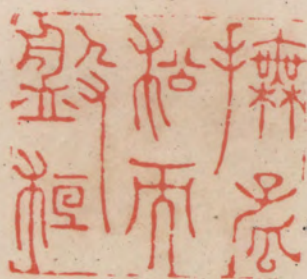 撫孤
松而
盤桓